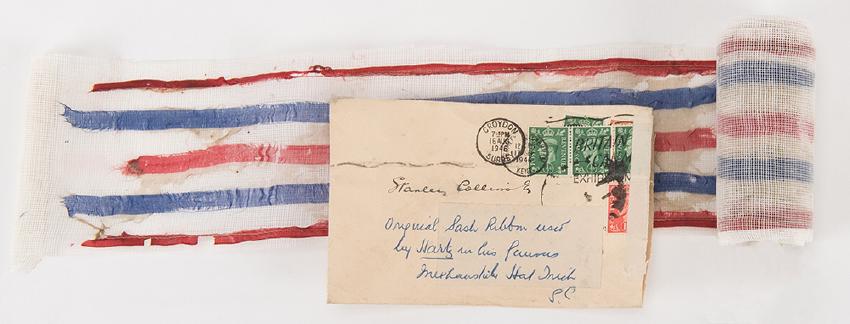 CROYDON
7:- PM
16 AUG
1946
SURREY
BRITAIN
EXHIBITION
Stanley Collins Esq
Original Sash Ribbon used
by Hartz in his Famous
Inexhaustible Hat Trick
S.C